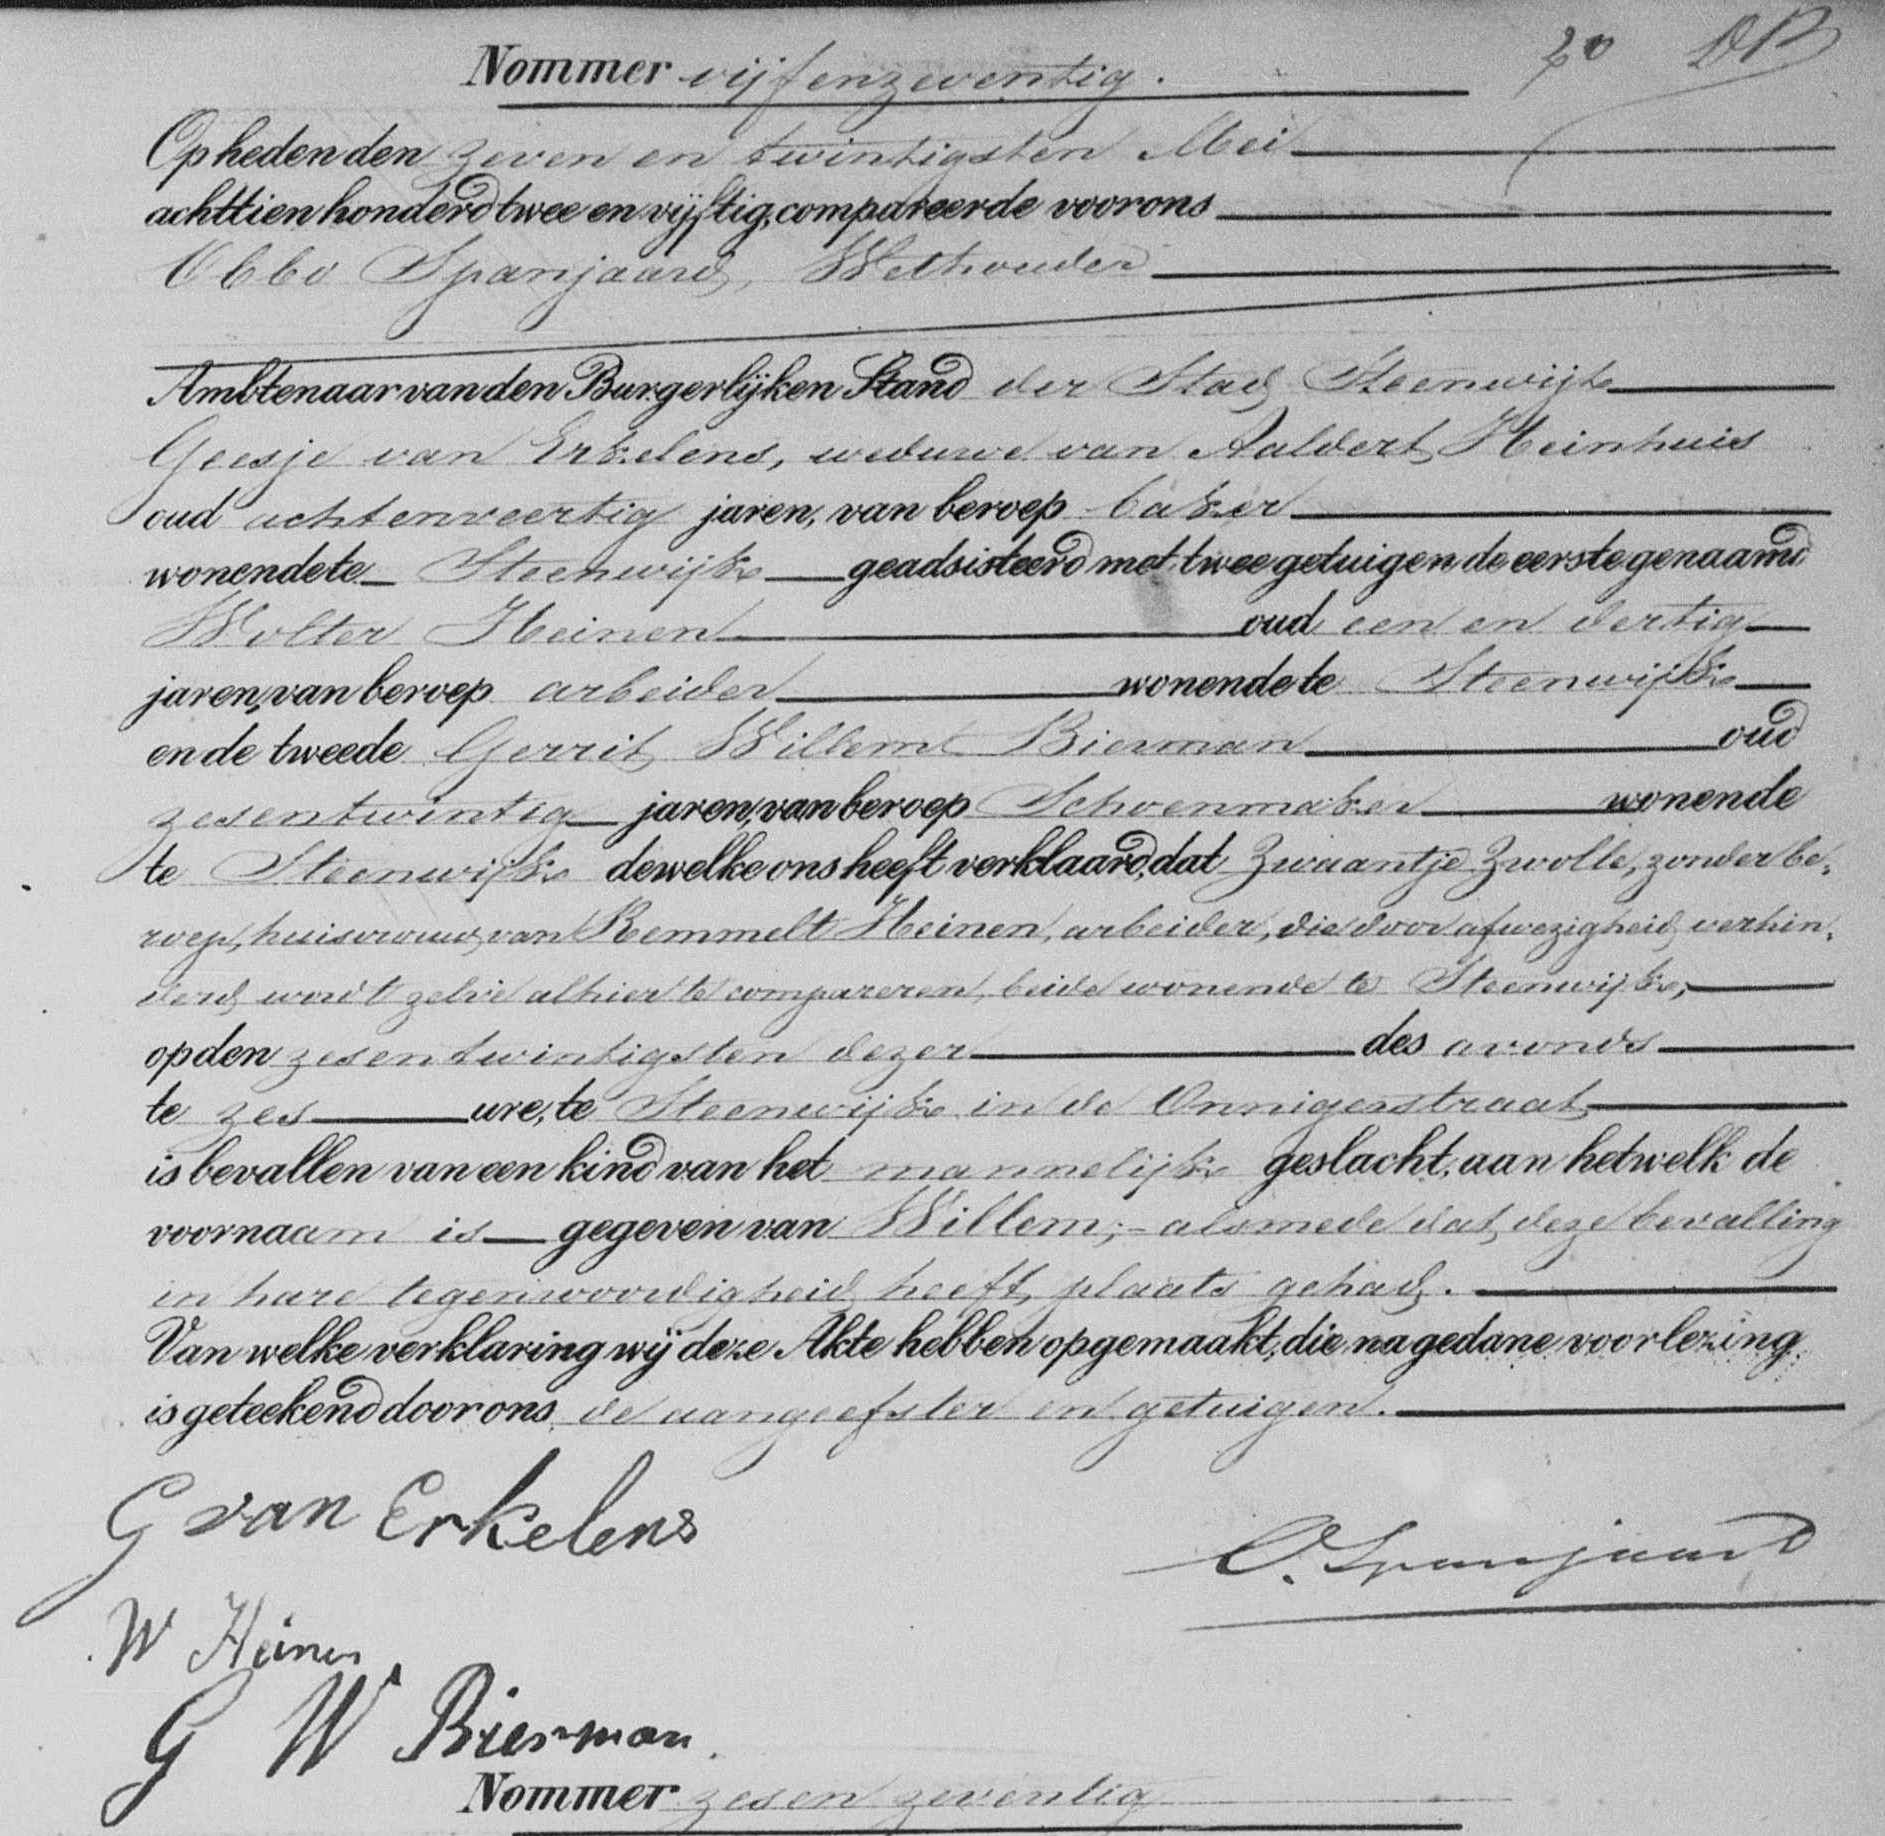 20 DB
Nommer vijfenzeventig.
Op heden den zeven en twintigsten Mei
achttien honderd twee en vijftig, compareerde voor ons
Obbo Spanjaard, Wethouder
Ambtenaar van den Burgerlijken Stand der Stad Steenwijk
Geesje van Erkelens, weduwe van Aaldert Heinhuis
oud achtenveertig jaren, van beroep baker
wonende te Steenwijk geadsisteerd met twee getuigen de eerste genaamd
Wolter Heinen oud een en dertig
jaren, van beroep arbeider wonende te Steenwijk
en de tweede Gerrit Willem Bierman oud
zesentwintig jaren, van beroep Schoenmaker wonende
te Steenwijk dewelke ons heeft verklaard, dat Zwaantje Zwolle, zonder be-
roep, huisvrouw van Remmelt Heinen, arbeider, die door afwezigheid verhin-
derd wordt zelve alhier te compareren, beide wonende te Steenwijk,
op den zesentwintigsten dezer des avonds
te zes ure, te Steenwijk in de Onnigerstraat
is bevallen van een kind van het mannelijk geslacht, aan hetwelk de
voornaam is gegeven van Willem;- alsmede dat deze bevalling
in hare tegenwoordigheid heeft plaats gehad.
Van welke verklaring wij deze Akte hebben opgemaakt, die na gedane voorlezing
is geteekend door ons de aangeefster en getuigen.
G van Erkelens
O. Spanjaard
W Heinen
G W Bierman.
Nommer zesen zeventig